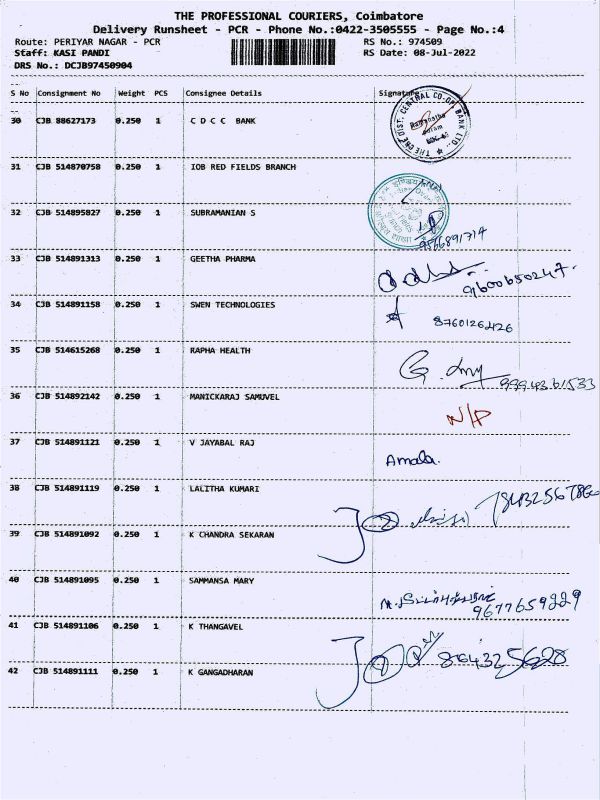 THE PROFESSIONAL COURIERS, Coimbatore
Delivery Runsheet - PCR - Phone No.:0422-3505555 - Page No.:4
Route: PERIYAR NAGAR - PCR RS No.: 974509
Staff: KASI PANDI RS Date: 08-Jul-2022
DRS No.: DCJB97450904
S No Consignment No Weight PCS Consignee Details Signature
30 CJB 88627173 0.250 1 C D C C BANK
31 CJB 514870758 0.250 1 IOB RED FIELDS BRANCH
32 CJB 514895827 0.250 1 SUBRAMANIAN S
9566891714
33 CJB 514891313 0.250 1 GEETHA PHARMA
9600650247.
34 CJB 514891158 0.250 1 SWEN TECHNOLOGIES
8760126426
35 CJB 514615268 0.250 1 RAPHA HEALTH
9994361533
36 CJB 514892142 0.250 1 MANICKARAJ SAMUVEL
N/P
37 CJB 514891121 0.250 1 V JAYABAL RAJ
Amala.
38 CJB 514891119 0.250 1 LALITHA KUMARI
39 CJB 514891092 0.250 1 K CHANDRA SEKARAN
40 CJB 514891095 0.250 1 SAMMANSA MARY
9677659229
41 CJB 514891106 0.250 1 K THANGAVEL
42 CJB 514891111 0.250 1 K GANGADHARAN